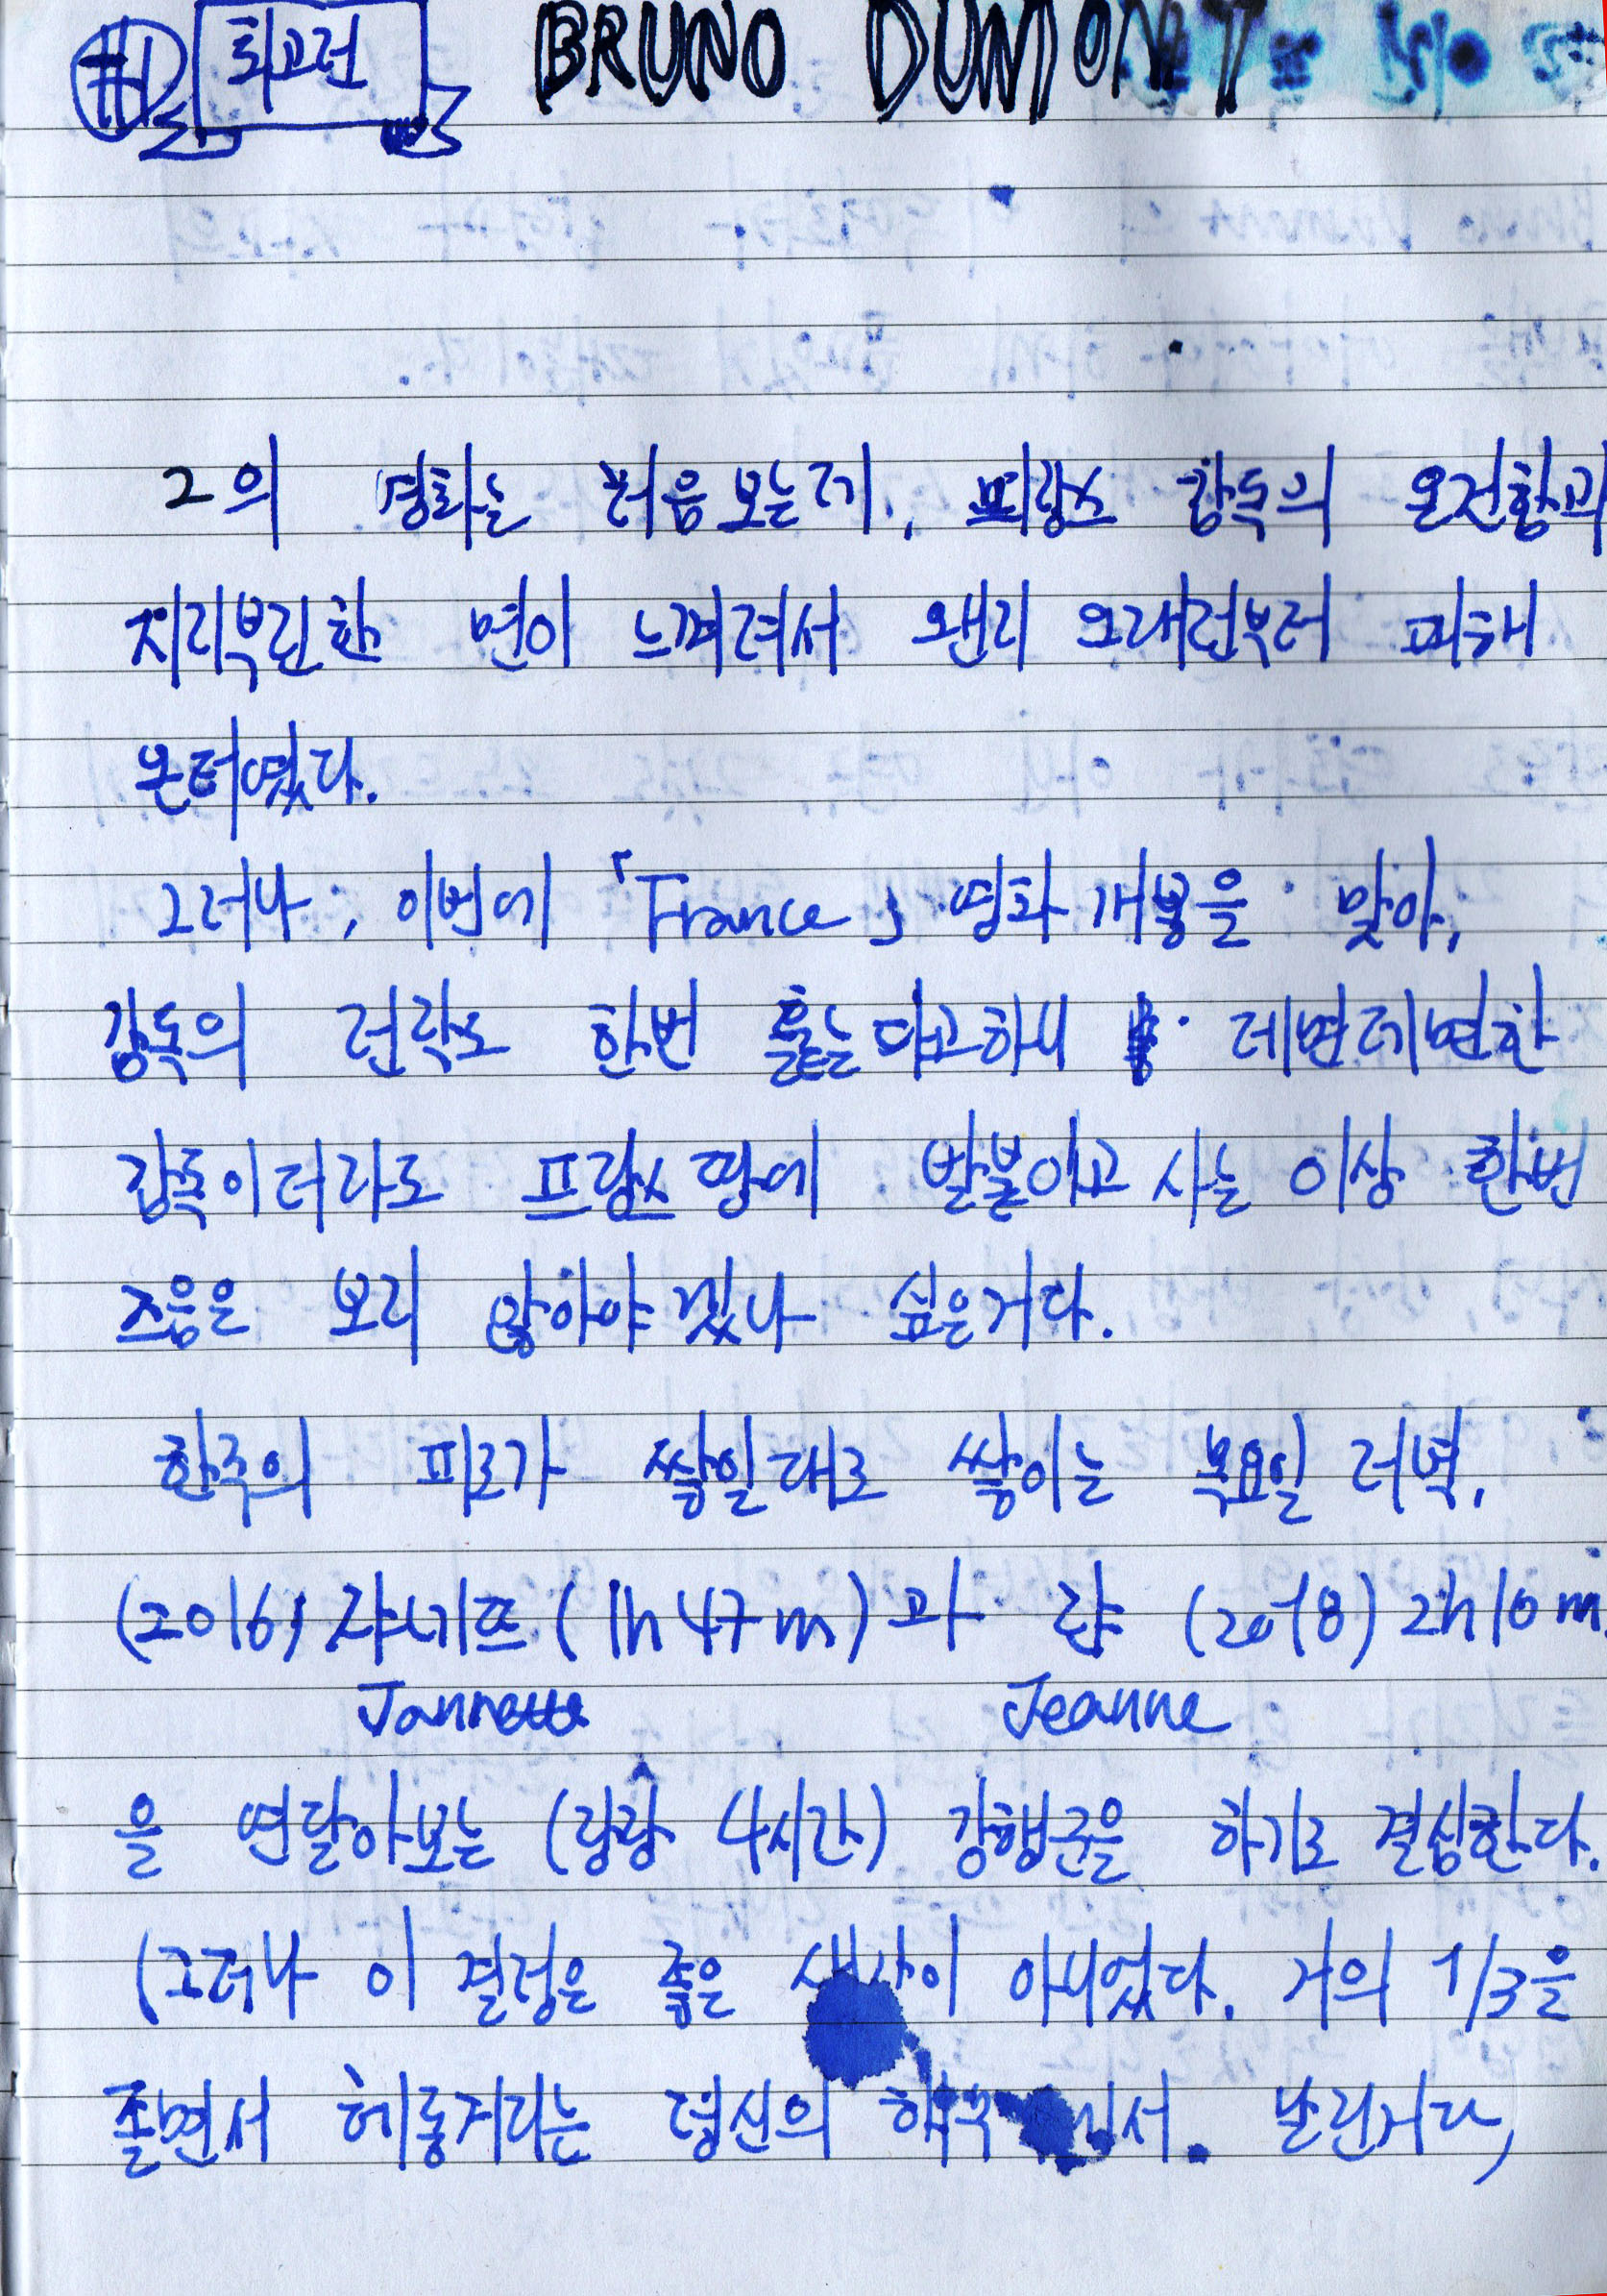 #1 회고전 BRUNO DUMONT
그의 영화는 처음보는데, 프랑스 감독의 온건함과
지리부린한 면이 느껴져서 왠지 오래전부터 피해
온터였다.
그러나, 이번에 「France」 영화개봉을 맞아,
감독의 전작도 한번 훑는다고하니 데면데면한
감독이더라도 프랑스땅에 발붙이고 사는 이상 한번
즈음은 보지 않아야겠나 싶은거다.
한주의 피로가 쌓일대로 쌓이는 목요일 저녁,
(2016) 쟈네뜨 (1h 47m) 과 쟌 (2018) 2h10m
Jannette Jeanne
을 연달아보는 (장장 4시간) 강행군을 하기로 결심한다.
(그러나 이 결정은 좋은 생각이 아니었다. 거의 1/3을
졸면서 헤롱거리는 정신의 날린거다)